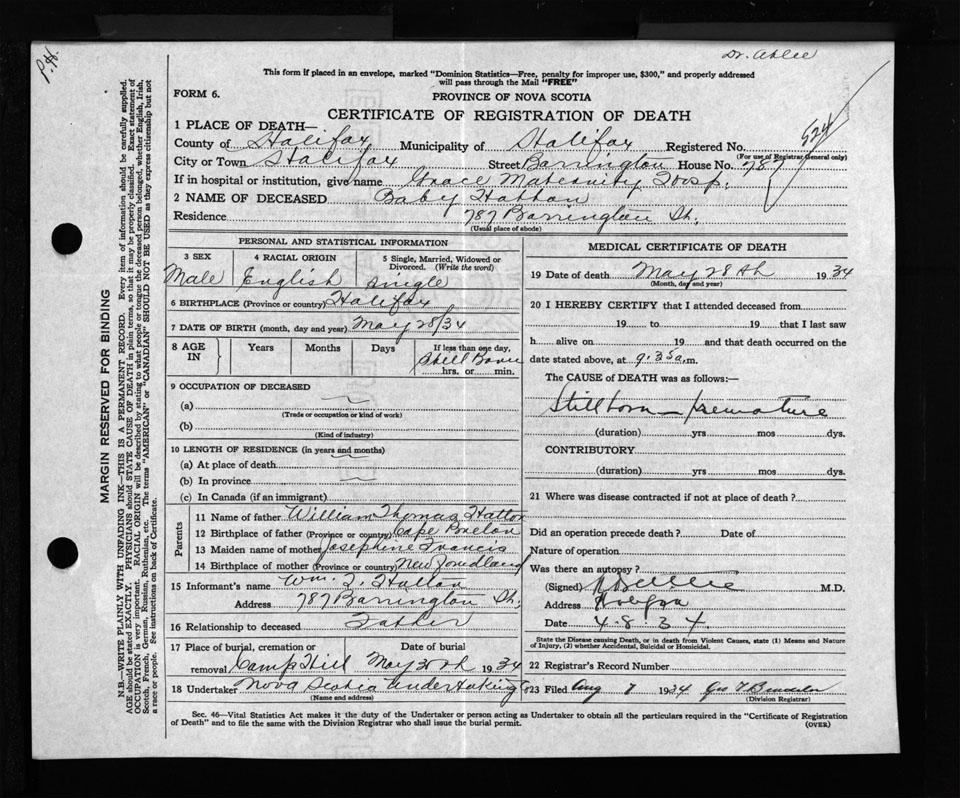 P.H.
Dr. Atlee
This form if placed in an envelope, marked "Dominion Statistics—Free, penalty for improper use, $300," and properly addressed
will pass through the Mail "FREE"
FORM 6.
PROVINCE OF NOVA SCOTIA
CERTIFICATE OF REGISTRATION OF DEATH
524
1 PLACE OF DEATH—
County of Halifax Municipality of Halifax Registered No.
(For use of Registrar General only)
City or Town Halifax Street Barrington House No. 787
If in hospital or institution, give name Grace Maternity Hosp.
2 NAME OF DECEASED Baby Hatton
Residence 787 Barrington St.
(Usual place of abode)
PERSONAL AND STATISTICAL INFORMATION
3 SEX 4 RACIAL ORIGIN 5 Single, Married, Widowed or Divorced. (Write the word)
Male English single
6 BIRTHPLACE (Province or country) Halifax
7 DATE OF BIRTH (month, day and year) May 28/34
8 AGE IN Years Months Days If less than one day, hrs. or min.
9 OCCUPATION OF DECEASED
(a)
(Trade or occupation or kind of work)
(b)
(Kind of industry)
10 LENGTH OF RESIDENCE (in years and months)
(a) At place of death
(b) In province
(c) In Canada (if an immigrant)
Parents
11 Name of father William Thomas Hatton
12 Birthplace of father (Province or country) Cape Breton
13 Maiden name of mother Josephine Francis
14 Birthplace of mother (Province or country) New Foundland
15 Informant's name Wm. T. Hatton
Address 787 Barrington St.
16 Relationship to deceased Father
17 Place of burial, cremation or removal Camp Hill Date of burial May 30th 1934
18 Undertaker Nova Scotia Undertaking
(Name and address)
MEDICAL CERTIFICATE OF DEATH
19 Date of death May 28th 1934
(Month, day and year)
20 I HEREBY CERTIFY that I attended deceased from
19 to 19 that I last saw
h alive on 19 and that death occurred on the
date stated above, at 9.35 a.m.
The CAUSE of DEATH was as follows:—
Stillborn — premature
(duration) yrs mos dys.
CONTRIBUTORY
(duration) yrs mos dys.
21 Where was disease contracted if not at place of death?
Did an operation precede death? Date of
Nature of operation
Was there an autopsy?
(Signed) M.D.
Address Halifax
Date 4.8.34.
State the Disease causing Death, or in death from Violent Causes, state (1) Means and Nature
of Injury, (2) whether Accidental, Suicidal or Homicidal.
22 Registrar's Record Number
23 Filed Aug 7 1934 Geo
(Division Registrar)
Sec. 46—Vital Statistics Act makes it the duty of the Undertaker or person acting as Undertaker to obtain all the particulars required in the "Certificate of Registration
of Death" and to file same with the Division Registrar who shall issue the burial permit.
(OVER)
MARGIN RESERVED FOR BINDING
N.B.—WRITE PLAINLY WITH UNFADING INK—THIS IS A PERMANENT RECORD. Every item of information should be carefully supplied.
AGE should be stated EXACTLY. PHYSICIANS should STATE CAUSE OF DEATH in plain terms, so that it may be properly classified. Exact statement of
OCCUPATION is very important. RACIAL ORIGIN will be described by stating to what people or tongue the deceased person belonged, whether English, Irish,
Scotch, French, German, Russian, Ruthenian, etc. The terms "AMERICAN" or "CANADIAN" SHOULD NOT BE USED as they express citizenship but not
a race or people. See instructions on back of Certificate.